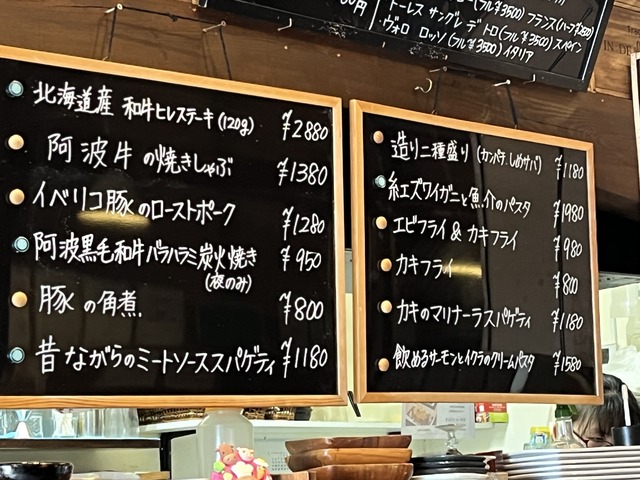 トーレス サングレ デ トロ (フル¥3500) スペイン
ヴォロ ロッソ (フル¥3500) イタリア
北海道産 和牛ヒレステーキ (120g) ¥2880
阿波牛の焼きしゃぶ ¥1380
イベリコ豚のローストポーク ¥1280
阿波黒毛和牛バラハラミ炭火焼き ¥950
(夜のみ)
豚の角煮 ¥800
昔ながらのミートソーススパゲティ ¥1180
造り二種盛り (カンパチ.しめサバ) ¥1180
紅ズワイガニと魚介のパスタ ¥1980
エビフライ & カキフライ ¥980
カキフライ ¥800
カキのマリナーラスパゲティ ¥1180
飲めるサーモンとイクラのクリームパスタ ¥1580